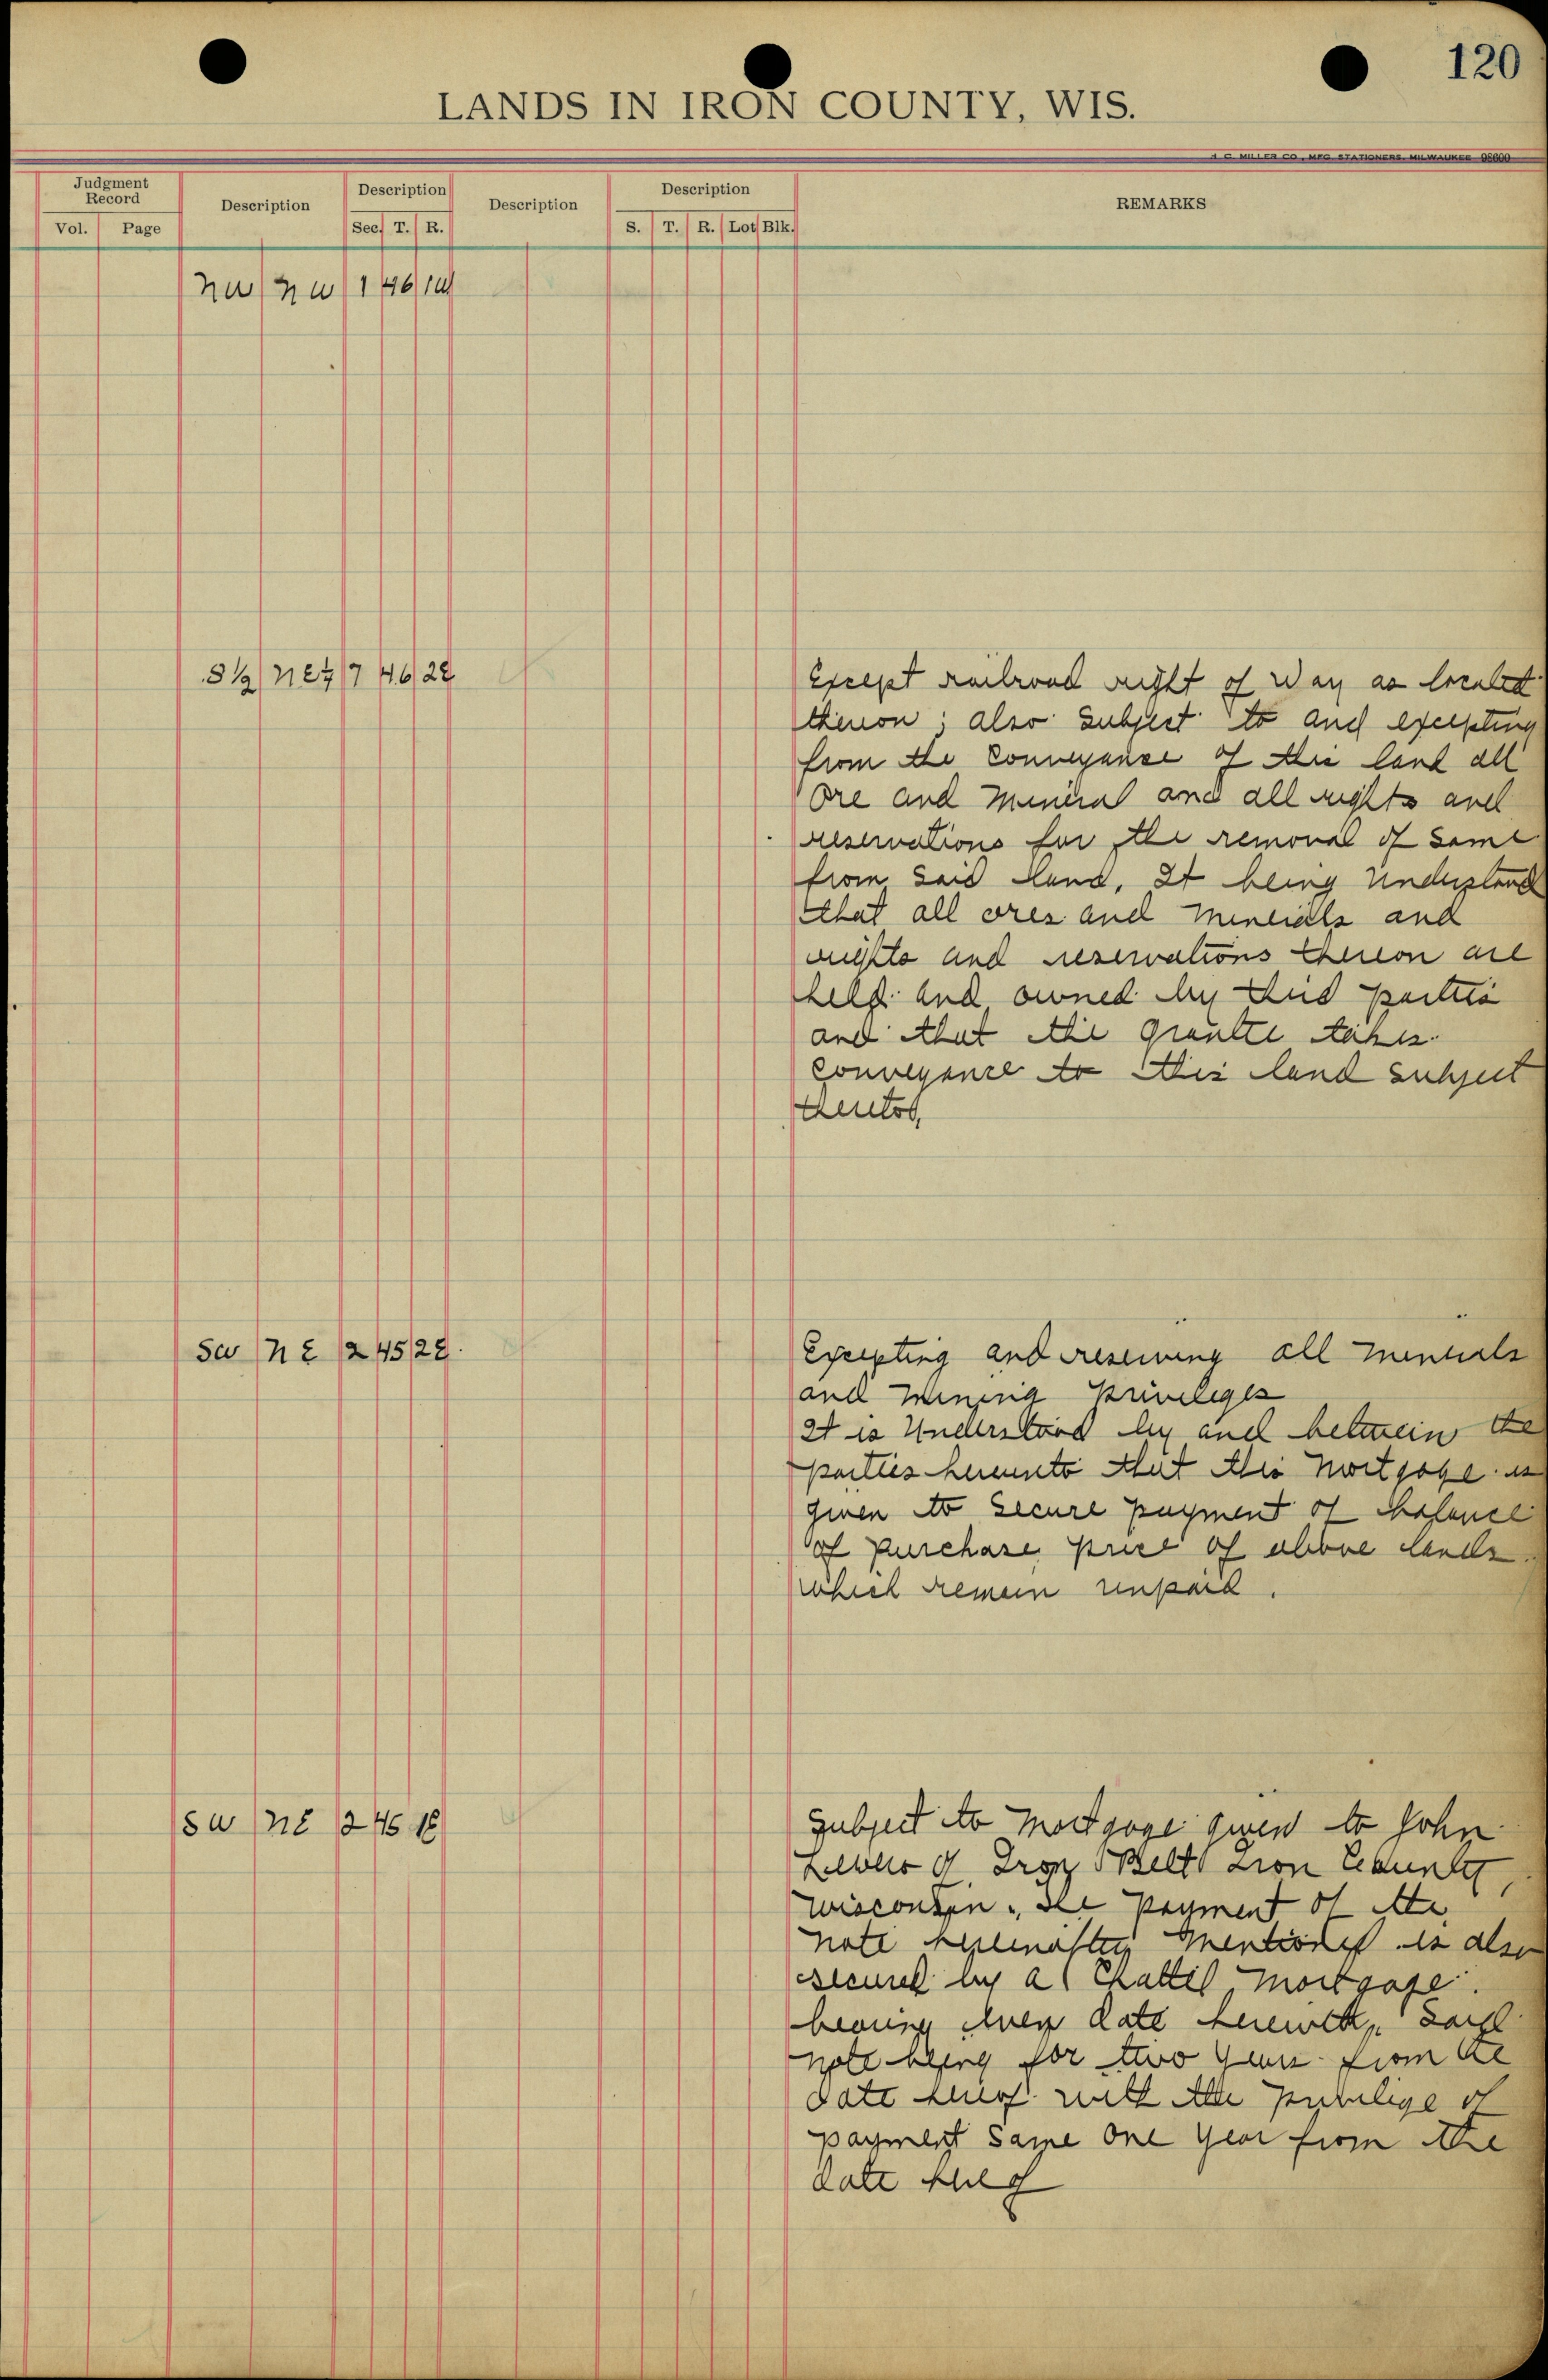 120
LANDS IN IRON COUNTY, WIS.
H. C. MILLER CO., MFG. STATIONERS, MILWAUKEE 98600
Judgment Record Description Description Description Description REMARKS
Vol. Page Sec. T. R. S. T. R. Lot Blk.
nw nw 1 46
S½ NE¼ 7 46 2E Except railroad right of Way as located
thereon; also subject to and excepting
from the conveyance of this land all
Ore and mineral and all rights and
reservations for the removal of same
from said land, It being Understand
that all ores and minerals and
rights and reservations thereon are
held and owned by third parties
and that the grantee takes
conveyance to this land subject
thereto,
SW NE 2 45 2E Excepting and reserving all minerals
and mining privileges
It is Understood by and between the
parties hereunto that this mortgage is
given to secure payment of balance
of purchase price of above lands
which remain unpaid.
SW NE 2 45 1E Subject to mortgage given to John
of Iron Belt Iron County,
Wisconsin. The payment of the
note hereinafter mentioned is also
secured by a Chattel mortgage
bearing even date herewith, Said
note being for two years from the
date hereof with the privilige of
payment same one year from the
date hereof